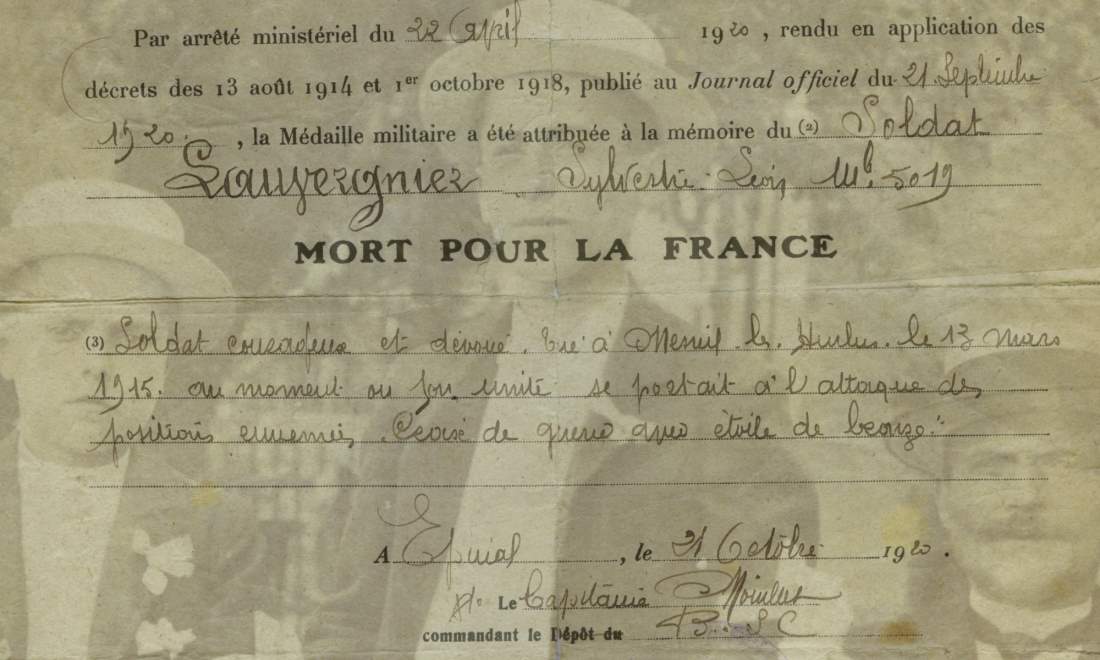 Par arrêté ministériel du 22 April 1920, rendu en application des
décrets des 13 août 1914 et 1er octobre 1918, publié au Journal officiel du 21 Septembre
1920, la Médaille militaire a été attribuée à la mémoire du (2) Soldat
Lauvergnier Sylvestre Léon Mle 5019
MORT POUR LA FRANCE
(3) Soldat courageux et dévoué. Tué à Mesnil les Hurlus le 13 mars
1915. au moment ou son unité se portait à l'attaque des
positions ennemies. Croix de guerre avec étoile de bronze."
A Epinal, le 21 Octobre 1920.
Le Capitaine
commandant le Dépôt du